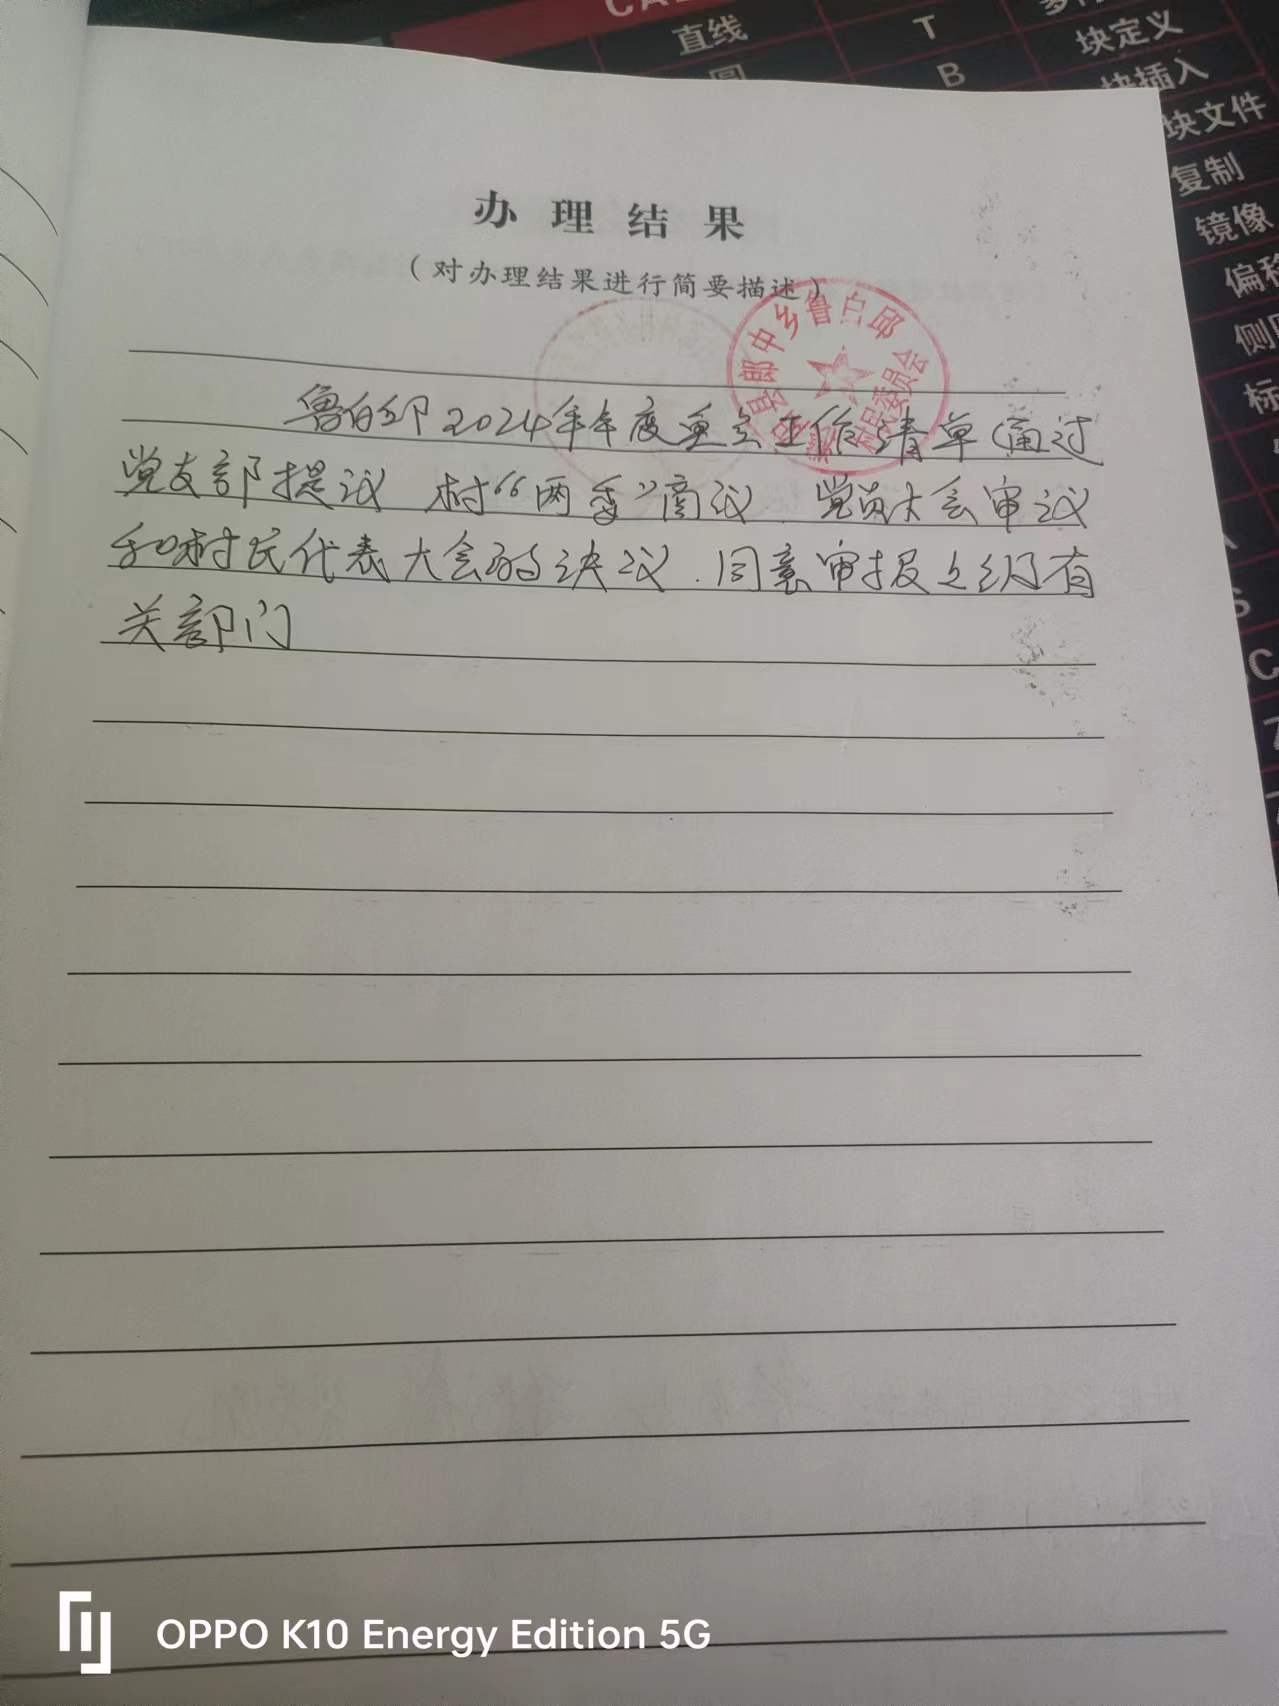 直线 T 块定义
圆 B 块插入
块文件
复制
镜像
偏移
办理结果
（对办理结果进行简要描述）
中乡鲁白邱
村民委员会
鲁白邱2024年年度重点工作清单通过
党支部提议 村“两委”商议 党员大会审议
和村民代表大会的决议.同意审报上级有
关部门
OPPO K10 Energy Edition 5G